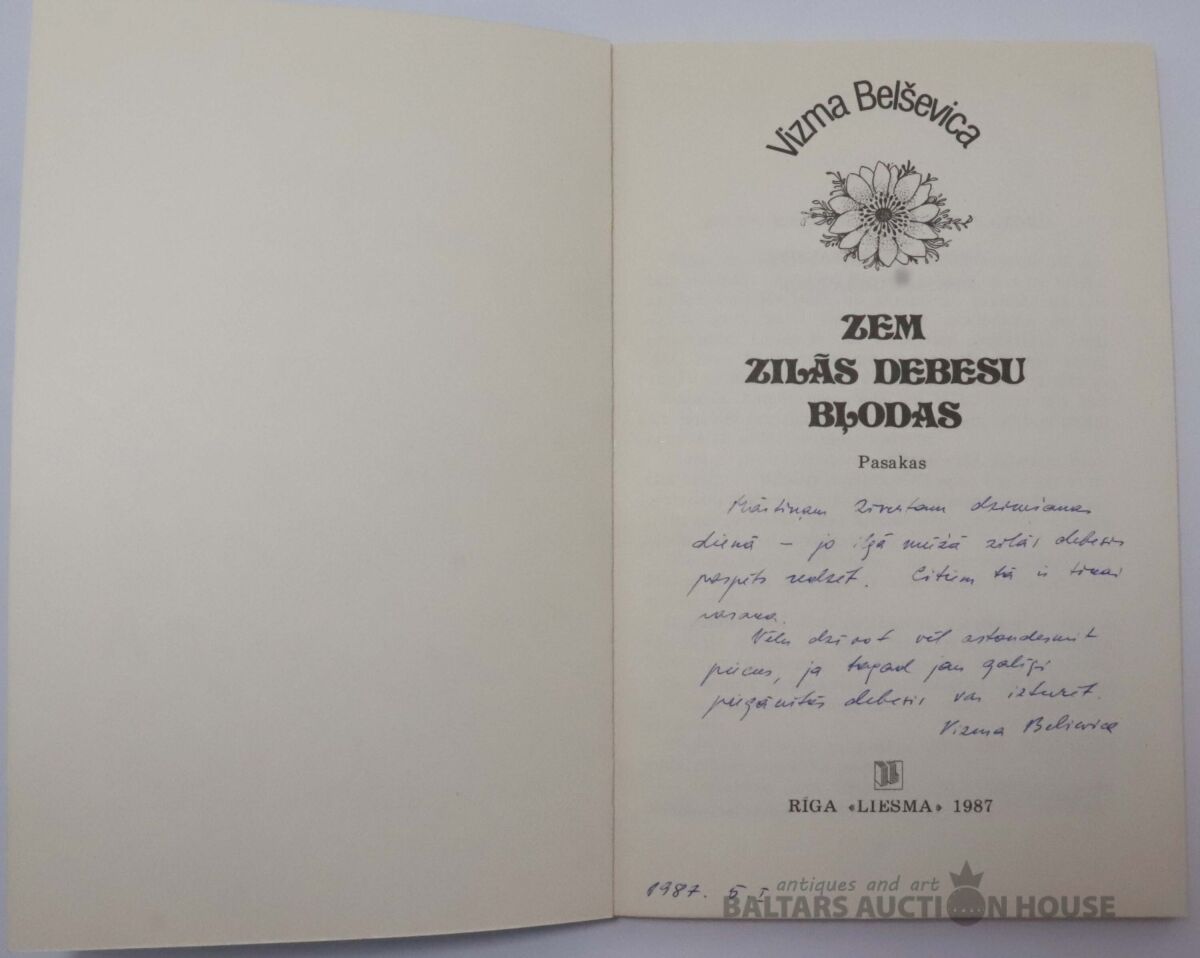 Vizma Belševica
ZEM
ZILĀS DEBESU
BĻODAS
Pasakas
Mārtiņam Zīvertam dzimšanas
dienā – jo ilgā mūžā zilās debesis
paspēts redzēt. Citiem tā ir tikai
vasara.
Vēlu dzīvot vēl astoņdesmit
piecus, ja tagad jau galīgi
piegānītās debesis var izturēt.
Vizma Belševica
RĪGA «LIESMA» 1987
1987. 5 I
antiques and art
BALTARS AUCTION HOUSE